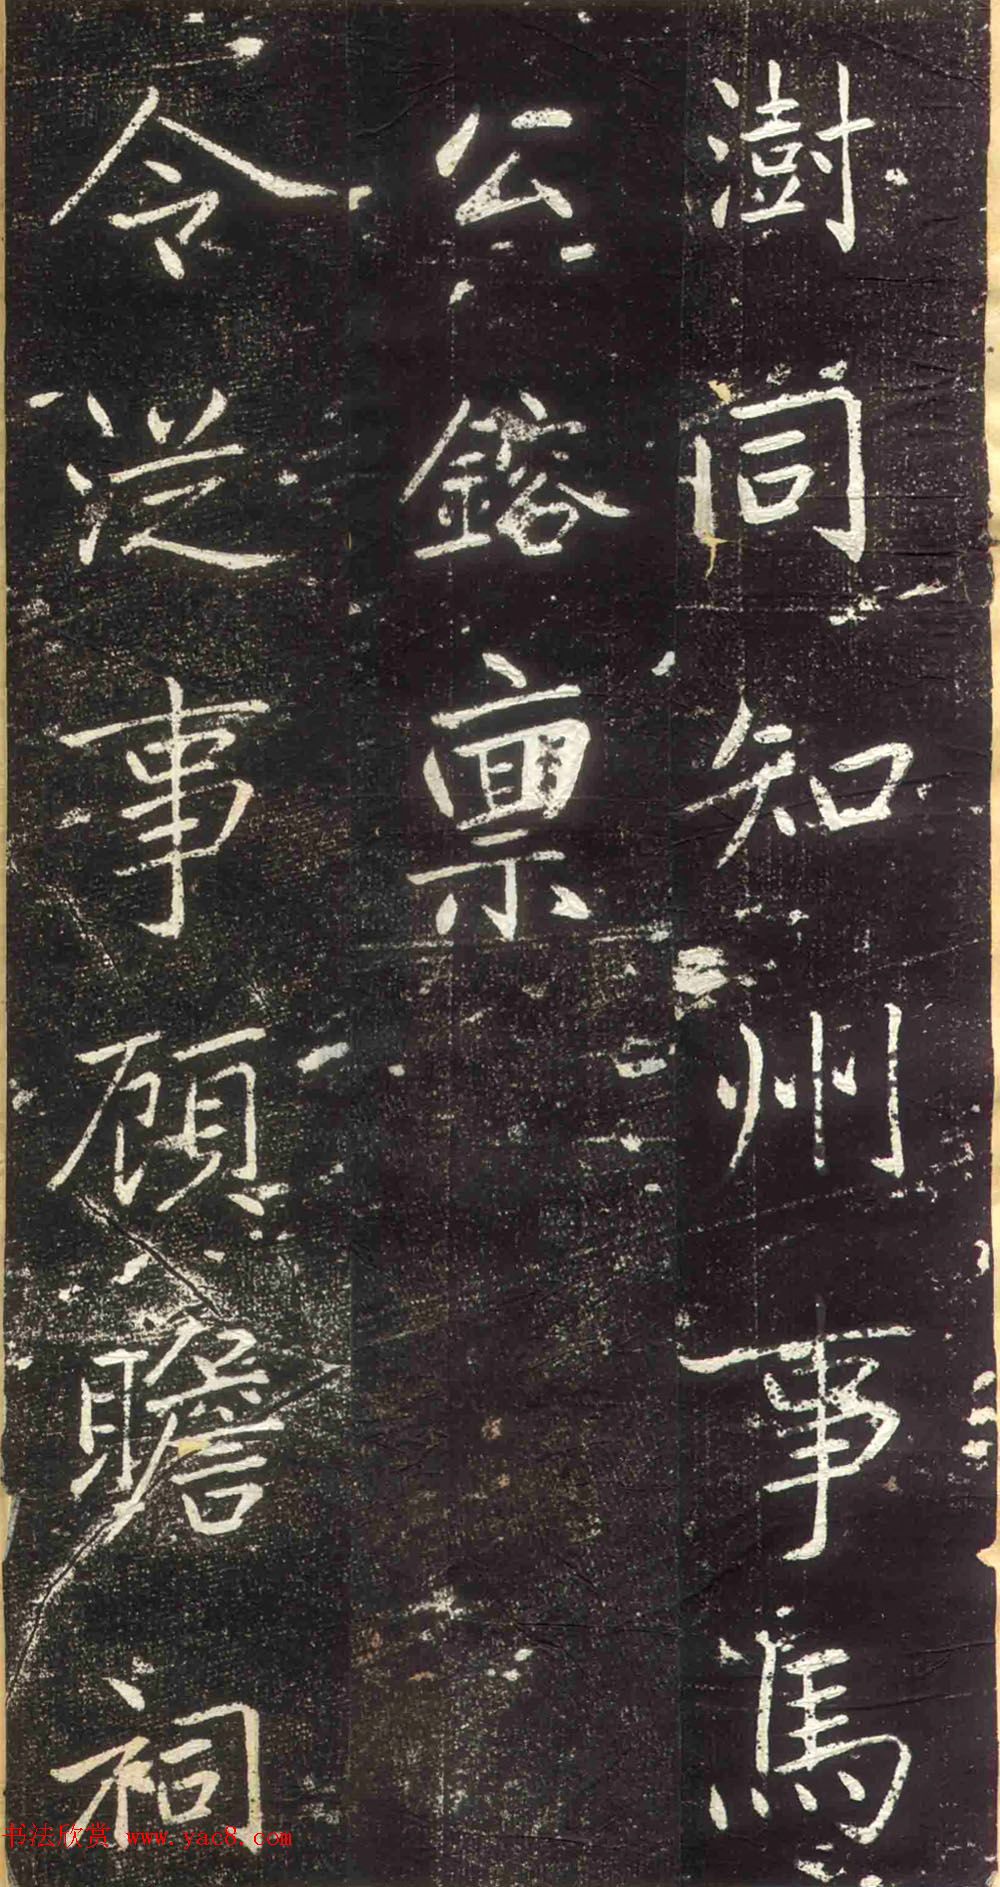 澍同知州事馬
公鎔稟
令從事顧瞻祠
书法欣赏 www.yac8.com